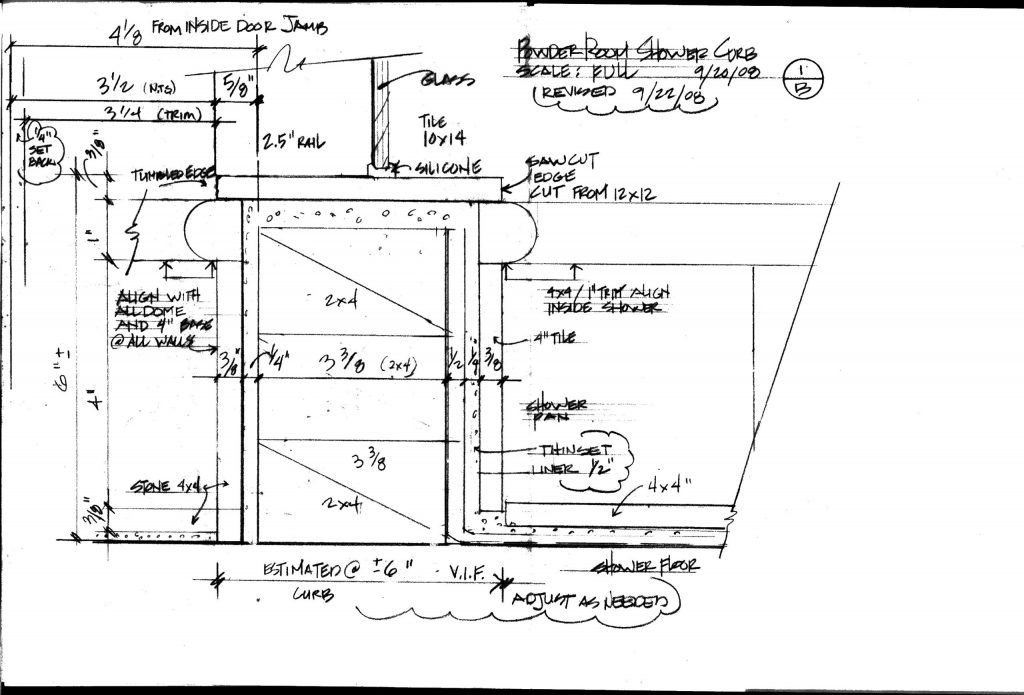 4 1/8 FROM INSIDE DOOR JAMB
POWDER ROOM SHOWER CURB
SCALE: FULL 9/20/08
(REVISED 9/22/08)
1
B
3 1/2 (NTS)
5/8"
3 1/4 (TRIM)
1/4"
SET
BACK
3/8"
2.5" RAIL
GLASS
TILE
10x14
SILICONE
TUMBLED EDGE
SAW CUT
EDGE
CUT FROM 12x12
1"
ALIGN WITH
ALL DOME
AND 4" BASE
@ ALL WALLS
2x4
4x4 / 1" TRIM ALIGN
INSIDE SHOWER
4" TILE
6" ±
4"
3/8"
1/4"
3 3/8 (2x4)
1/2
1/4
3/8
SHOWER
PAN
THINSET
LINER 1/2"
3 3/8
2x4
STONE 4x4
4x4"
3/8"
ESTIMATED @ ±6" V.I.F.
CURB
SHOWER FLOOR
ADJUST AS NEEDED